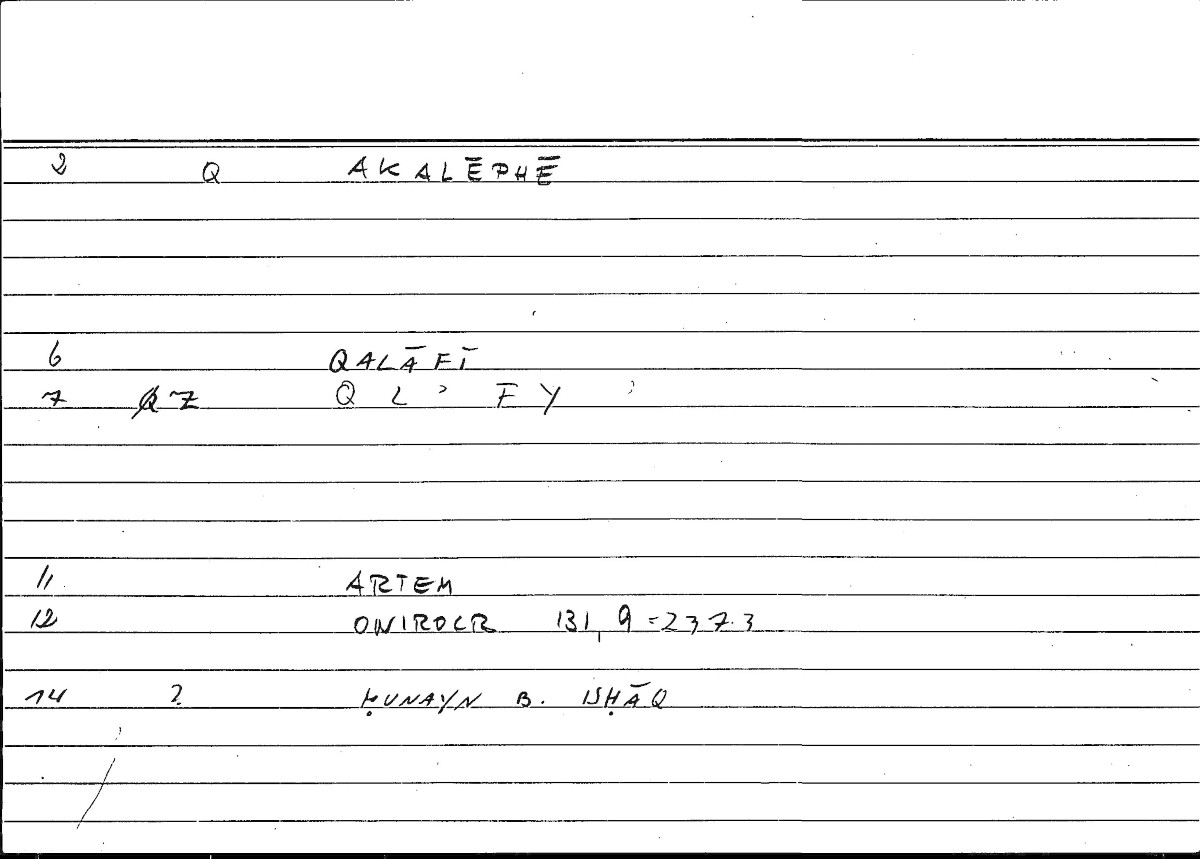 2 Q AKALĒPHĒ
6 QALĀFĪ
7 QZ Q L ʾ F Y
11 ARTEM
12 ONIROCR 131,9=237.3
14 2 ḤUNAYN B. ISḤĀQ